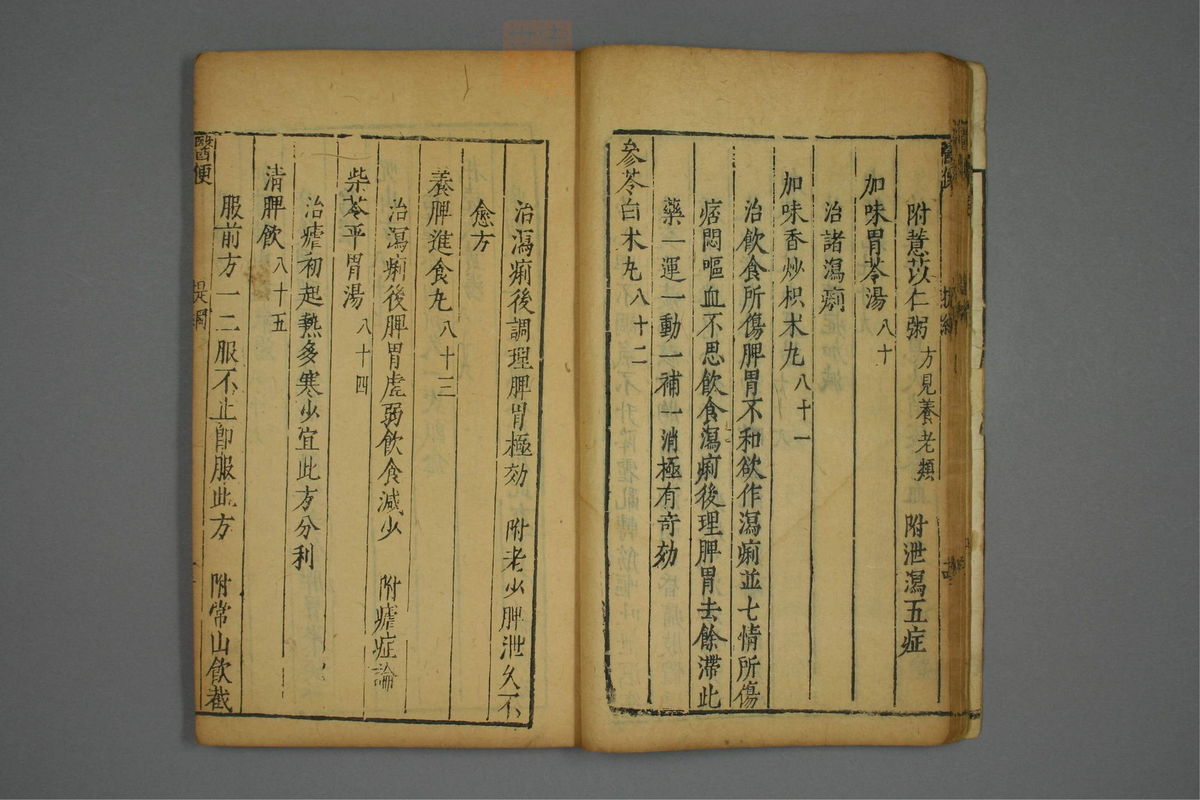 附薏苡仁粥方見養老類　附泄瀉五症
加味胃苓湯八十
治諸瀉痢
加味香炒枳朮丸八十一
治飲食所傷脾胃不和欲作瀉痢並七情所傷
痞悶嘔血不思飲食瀉痢後理脾胃去餘滯此
藥一運一動一補一消極有奇効
參苓白朮丸八十二
治瀉痢後調理脾胃極効　附老少脾泄久不
愈方
養脾進食丸八十三
治瀉痢後脾胃虛弱飲食減少　附瘧症論
柴苓平胃湯八十四
治瘧初起熱多寒少宜此方分利
清脾飲八十五
服前方一二服不止卽服此方　附常山飲截
醫便　提綱